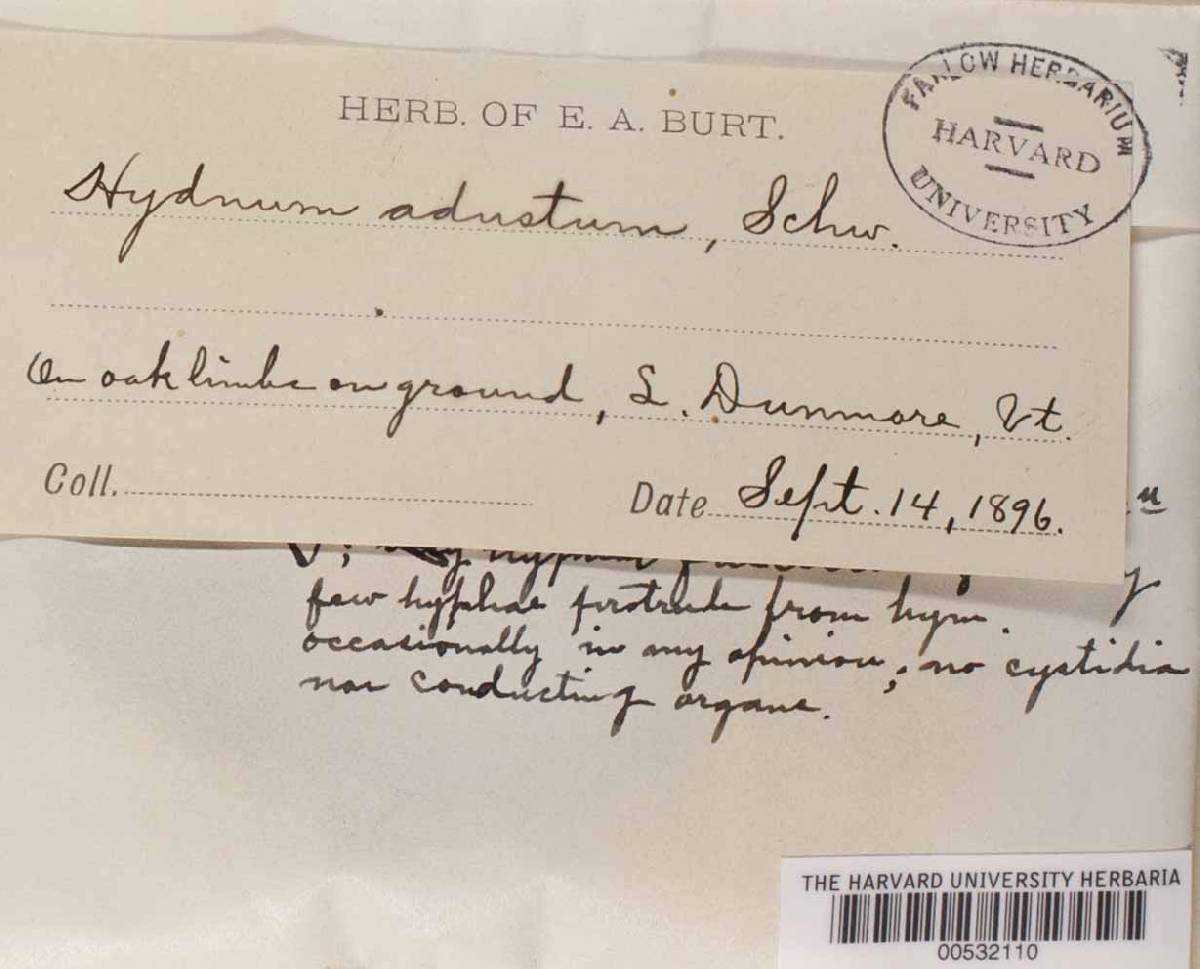 HERB. OF E. A. BURT.
FARLOW HERBARIUM
HARVARD
UNIVERSITY
Hydnum adustum, Schw.
On oak limbs on ground, L. Dunmore, Vt.
Coll.
Date Sept. 14, 1896.
few hyphae protrude from hym.
occasionally in my opinion; no cystidia
nor conducting organs.
THE HARVARD UNIVERSITY HERBARIA
00532110